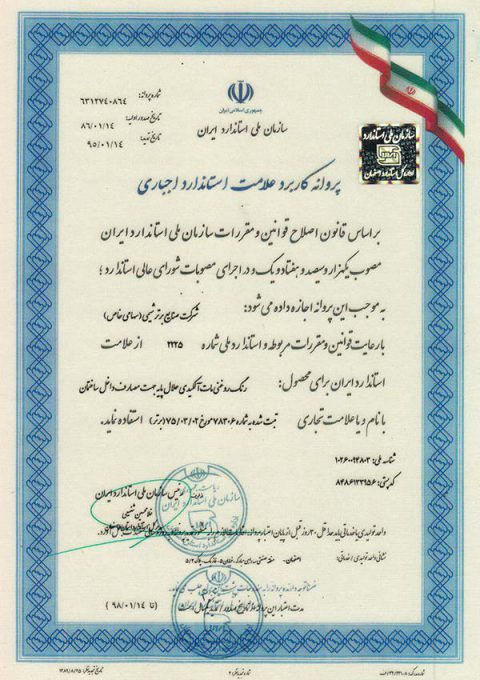 شماره پروانه: ۶۳۱۲۷۴۰۸۶۴
تاریخ صدور اولیه: ۸۶/۰۱/۱۴
تاریخ تمدید: ۹۵/۰۱/۱۴
جمهوری اسلامی ایران
سازمان ملی استاندارد ایران
سازمان ملی استاندارد
اداره کل استاندارد اصفهان
پروانه کاربرد علامت استاندارد اجباری
بر اساس قانون اصلاح قوانین و مقررات سازمان ملی استاندارد ایران
مصوب یکهزار و سیصد و هفتاد و یک و در اجرای مصوبات شورای عالی استاندارد ؛
به موجب این پروانه اجازه داده می شود: شرکت صنایع برتر شیمی (سهامی خاص)
با رعایت قوانین و مقررات مربوطه و استاندارد ملی شماره ۲۲۲۵ از علامت
استاندارد ایران برای محصول: رنگ روغنی مات آلکیدی حلال پایه جهت مصارف داخل ساختمان
با نام و یا علامت تجاری ثبت شده به شماره ۷۸۳۰۶ مورخ ۷۵/۰۳/۰۲ (برتر) استفاده نماید.
شناسه ملی: ۱۰۲۶۰۰۹۴۸۰۲
کد پستی: ۸۴۸۶۱۲۳۹۵۶
رئیس سازمان ملی استاندارد ایران
غلامحسین شفیعی
واحد تولیدی یا خدماتی باید حداقل ۳۰ روز قبل از پایان اعتبار پروانه
نشانی واحد تولیدی / خدماتی: اصفهان - منطقه صنعتی
مدت اعتبار این پروانه از تاریخ صدور / تمدید (تا ۹۸/۰۱/۱۴)